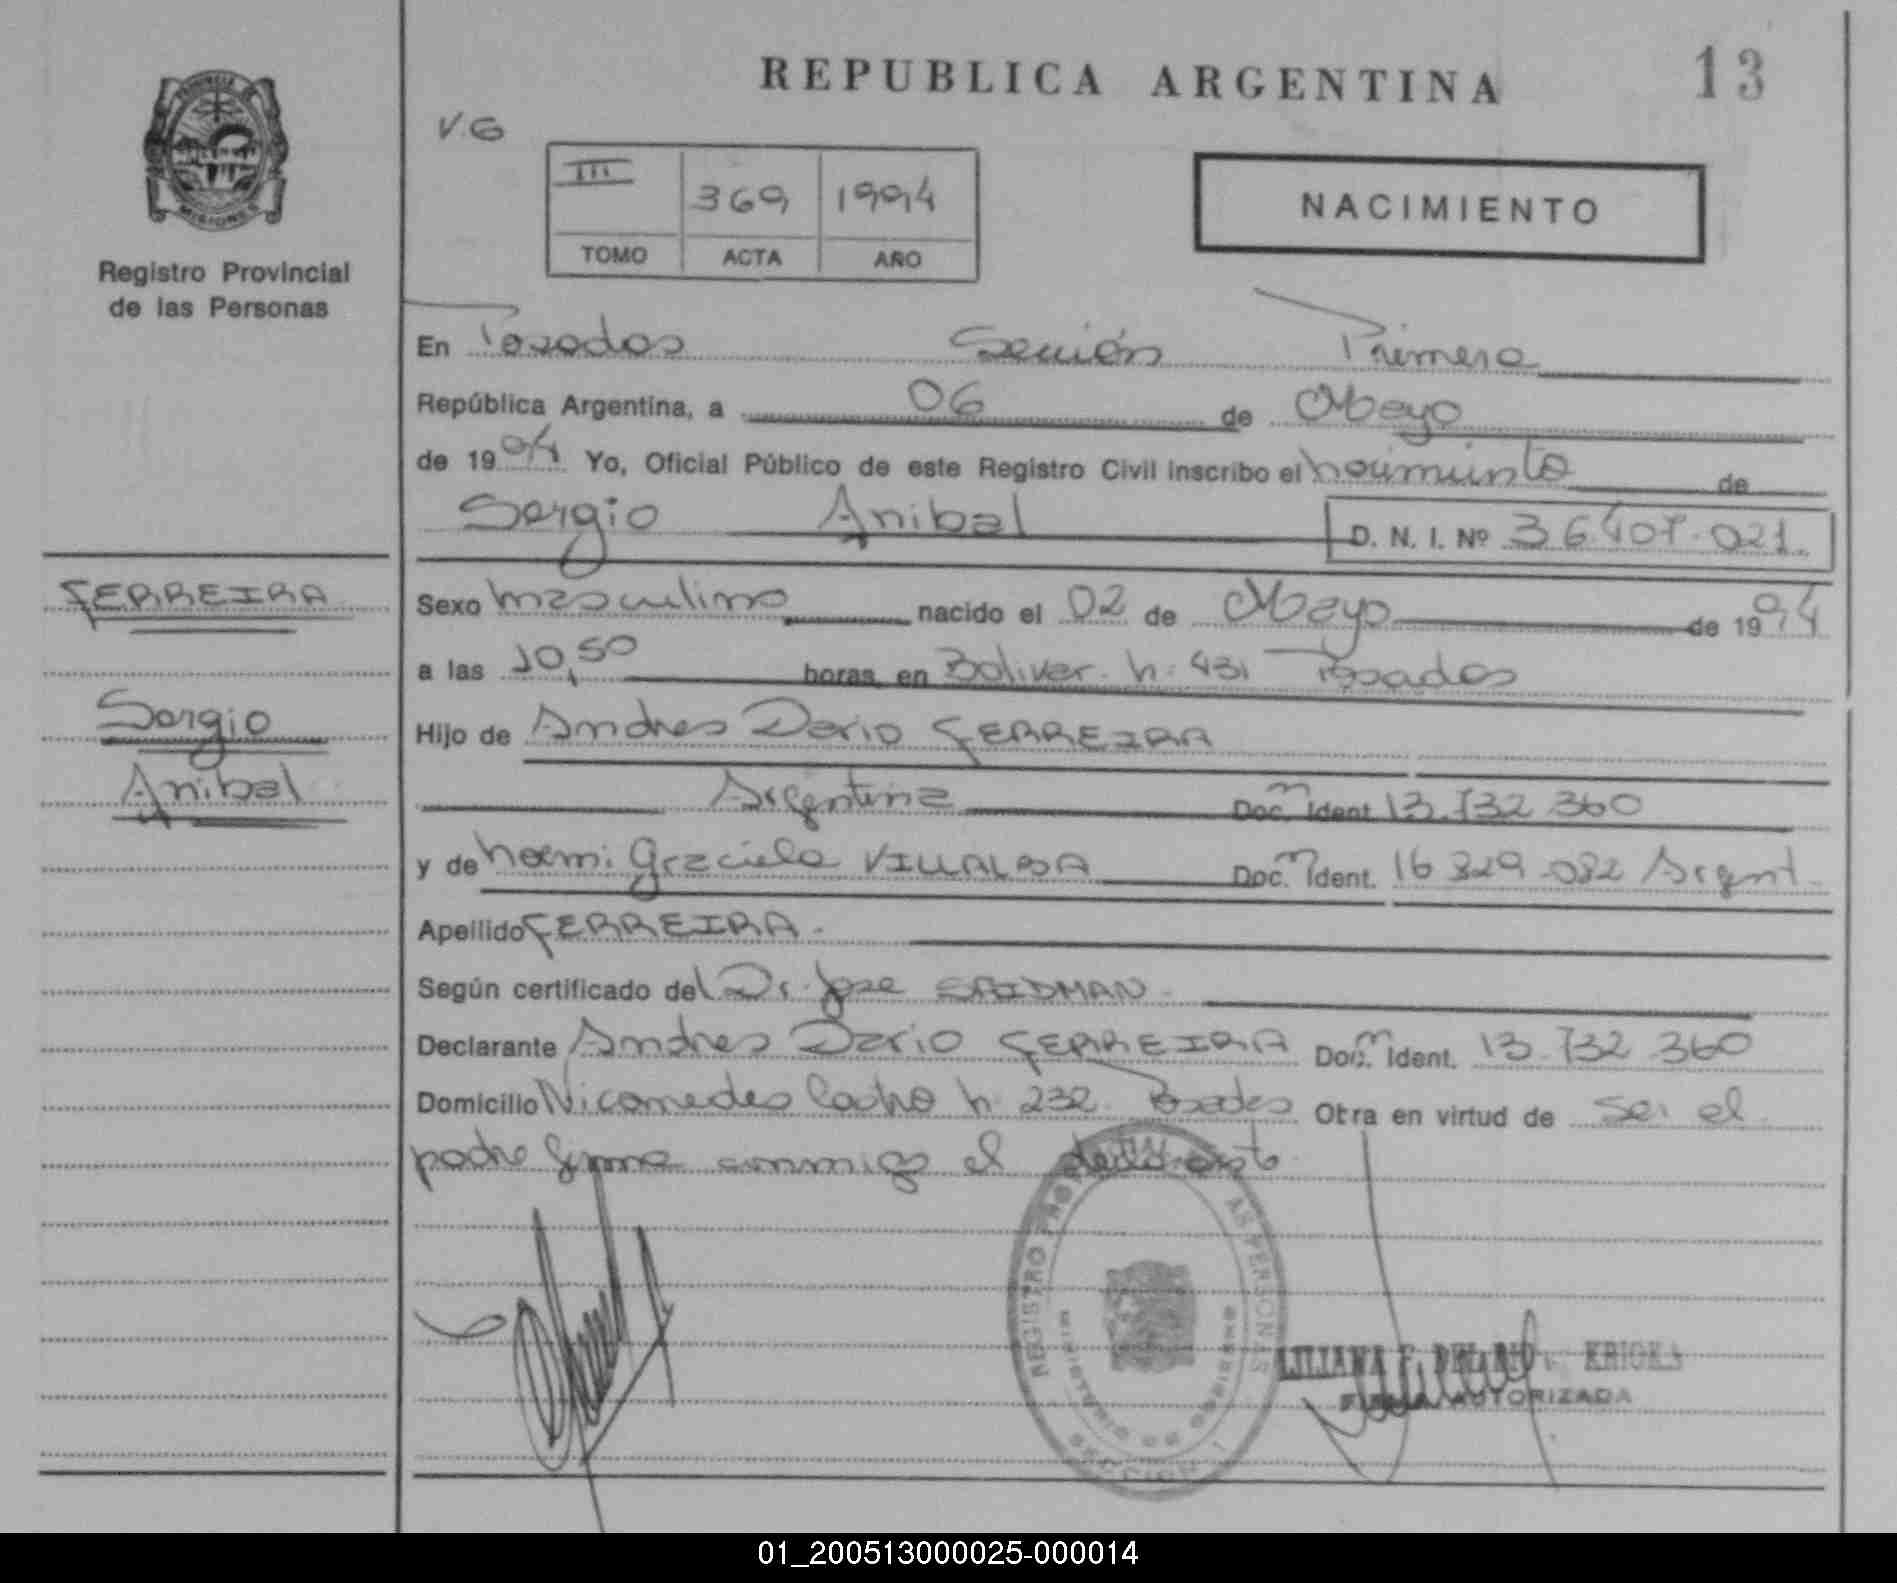 REPUBLICA ARGENTINA
13
V.G
III 369 1994
TOMO ACTA AÑO
NACIMIENTO
PROVINCIA DE
MISIONES
Registro Provincial
de las Personas
En Posadas Sección Primera
República Argentina, a 06 de Mayo
de 1994 Yo, Oficial Público de este Registro Civil inscribo el nacimiento de
Sergio Anibal D. N. I. Nº 36.407.021.
FERREIRA
Sergio
Anibal
Sexo masculino nacido el 02 de Mayo de 1994
a las 10,50 horas en Bolivar. n: 431 Posadas
Hijo de Andres Dario FERREIRA
Argentina Doc. Ident 13.732.360
y de Noemi Graciela VILLALBA Doc. Ident. 16.829.082 Argent.
Apellido FERREIRA.
Según certificado del Dr. Jose
Declarante Andres Dario FERREIRA Doc. Ident. 13.732.360
Domicilio Nicomedes Castro n. 232. Posadas Otra en virtud de ser el
padre firma conmigo el declarante.
REGISTRO LAS PERSONAS
MINISTERIO DE GOBIERNO
SECCION 1
LILIANA F.
FIRMA AUTORIZADA
01_200513000025-000014